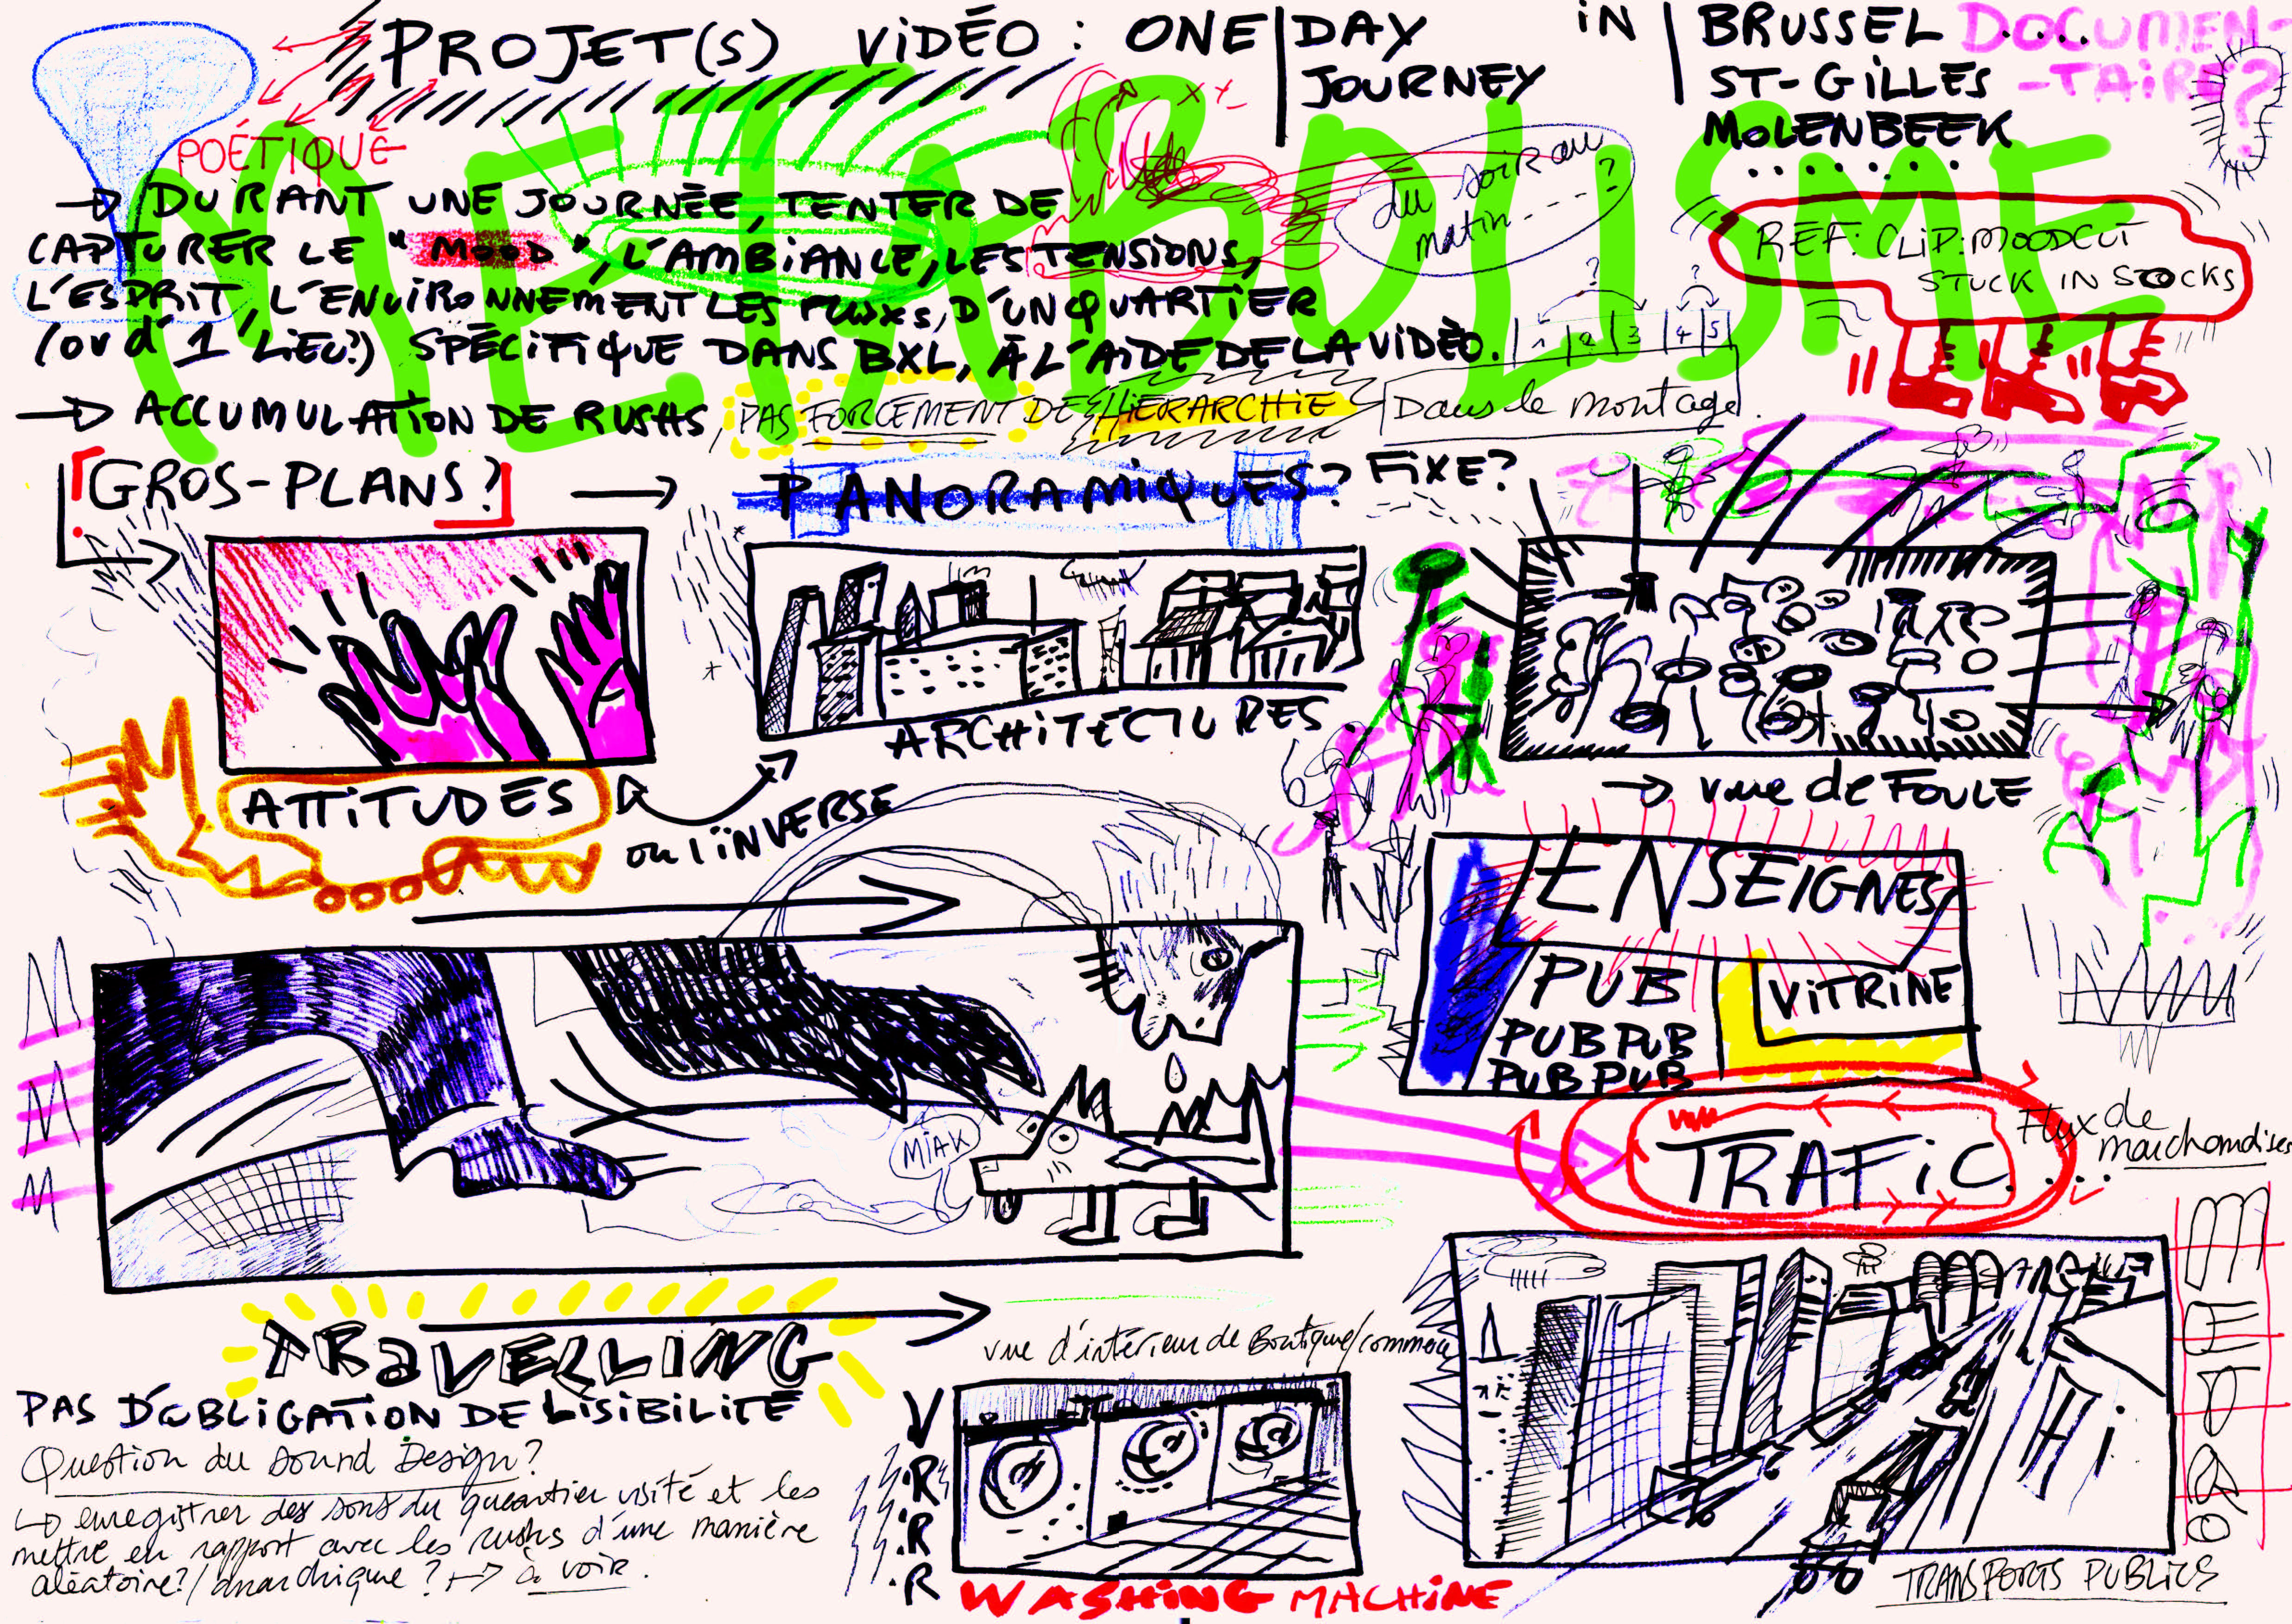 PROJET(S) ViDÉO : ONE DAY JOURNEY iN BRUSSEL ST-GiLLES MOLENBEEK
DOCUMEN-
-TAiRE?
POÉTIQUE
METABOLISME
→ DURANT UNE JOURNÉE, TENTER DE
CAPTURER LE "MOOD", L'AMBiANCE, LES TENSiONS,
L'ESPRiT, L'ENViRONNEMENT LES FLUXS, D'UN QUARTiER
(ou d'1 LiEU?) SPÉCiFiQUE DANS BXL, À L'AiDE DE LA ViDÉO.
du soir au
matin - - - - ?
RÉF: CLiP: MOODCUT
STUCK IN STOCKS
? ?
1 2 3 4 5
→ ACCUMULATiON DE RUSHS, PAS FORCÉMENT DE HiÉRARCHiE Dans le montage.
GROS-PLANS? → PANORAMiQUES? FiXE?
ATTiTUDES
ou l'iNVERSE
ARCHiTECTURES.
→ vue de FOULE
ENSEIGNES
PUB
PUB PUB
PUB PUB
ViTRiNE
MIAK
TRAFiC....
Flux de
marchandises
TRaVELLiNG
PAS D'OBLiGATiON DE LiSiBiLiTÉ
Question du Sound Design?
↳ enregistrer des sons du quartier visité et les
mettre en rapport avec les rushs d'une manière
aléatoire?/anarchique? → à voir.
vue d'intérieur de Boutique/commerce
V
R
R
R
WASHiNG MACHiNE
TRANSPORTS PUBLiCS